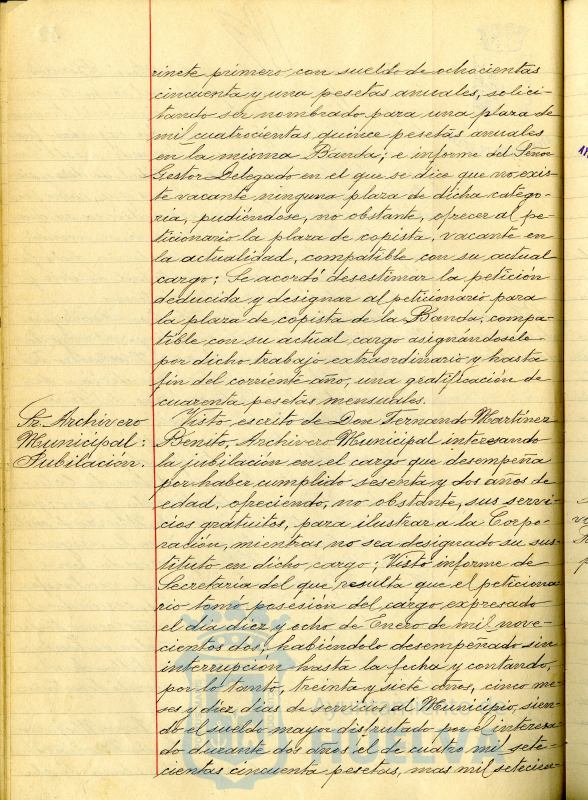 rinete primero, con sueldo de ochocientas
cincuenta y una pesetas anuales, solici-
tando ser nombrado para una plaza de
mil cuatrocientas quince pesetas anuales
en la misma Banda; e informe del Señor
Gestor Delegado en el que se dice que no exis-
te vacante ninguna plaza de dicha catego-
ria, pudiéndose, no obstante, ofrecer al pe-
ticionario la plaza de copista, vacante en
la actualidad, compatible con su actual
cargo; Se acordó desestimar la petición
deducida y designar al peticionario para
la plaza de copista de la Banda, compa-
tible con su actual cargo asignándosele
por dicho trabajo extraordinario y hasta
fin del corriente año, una gratificación de
cuarenta pesetas mensuales.
Sr. Archivero
Municipal:
Jubilación.
Visto escrito de Don Fernando Martínez
Benito, Archivero Municipal interesando
la jubilación en el cargo que desempeña
por haber cumplido sesenta y dos años de
edad, ofreciendo, no obstante, sus servi-
cios gratuitos, para ilustrar a la Corpo-
ración, mientras no sea designado su sus-
tituto en dicho cargo; Visto informe de
Secretaría del que resulta que el peticiona-
rio tomo posesión del cargo expresado
el día diez y ocho de Enero de mil nove-
cientos dos, habiéndolo desempeñado sin
interrupción hasta la fecha y contando,
por lo tanto, treinta y siete años, cinco me-
ses y diez días de servicios al Municipio, sien-
do el sueldo mayor disfrutado por el interesa-
do durante dos años el de cuatro mil sete-
cientas cincuenta pesetas, mas mil setecien-
Ayuntamiento
HUELVA